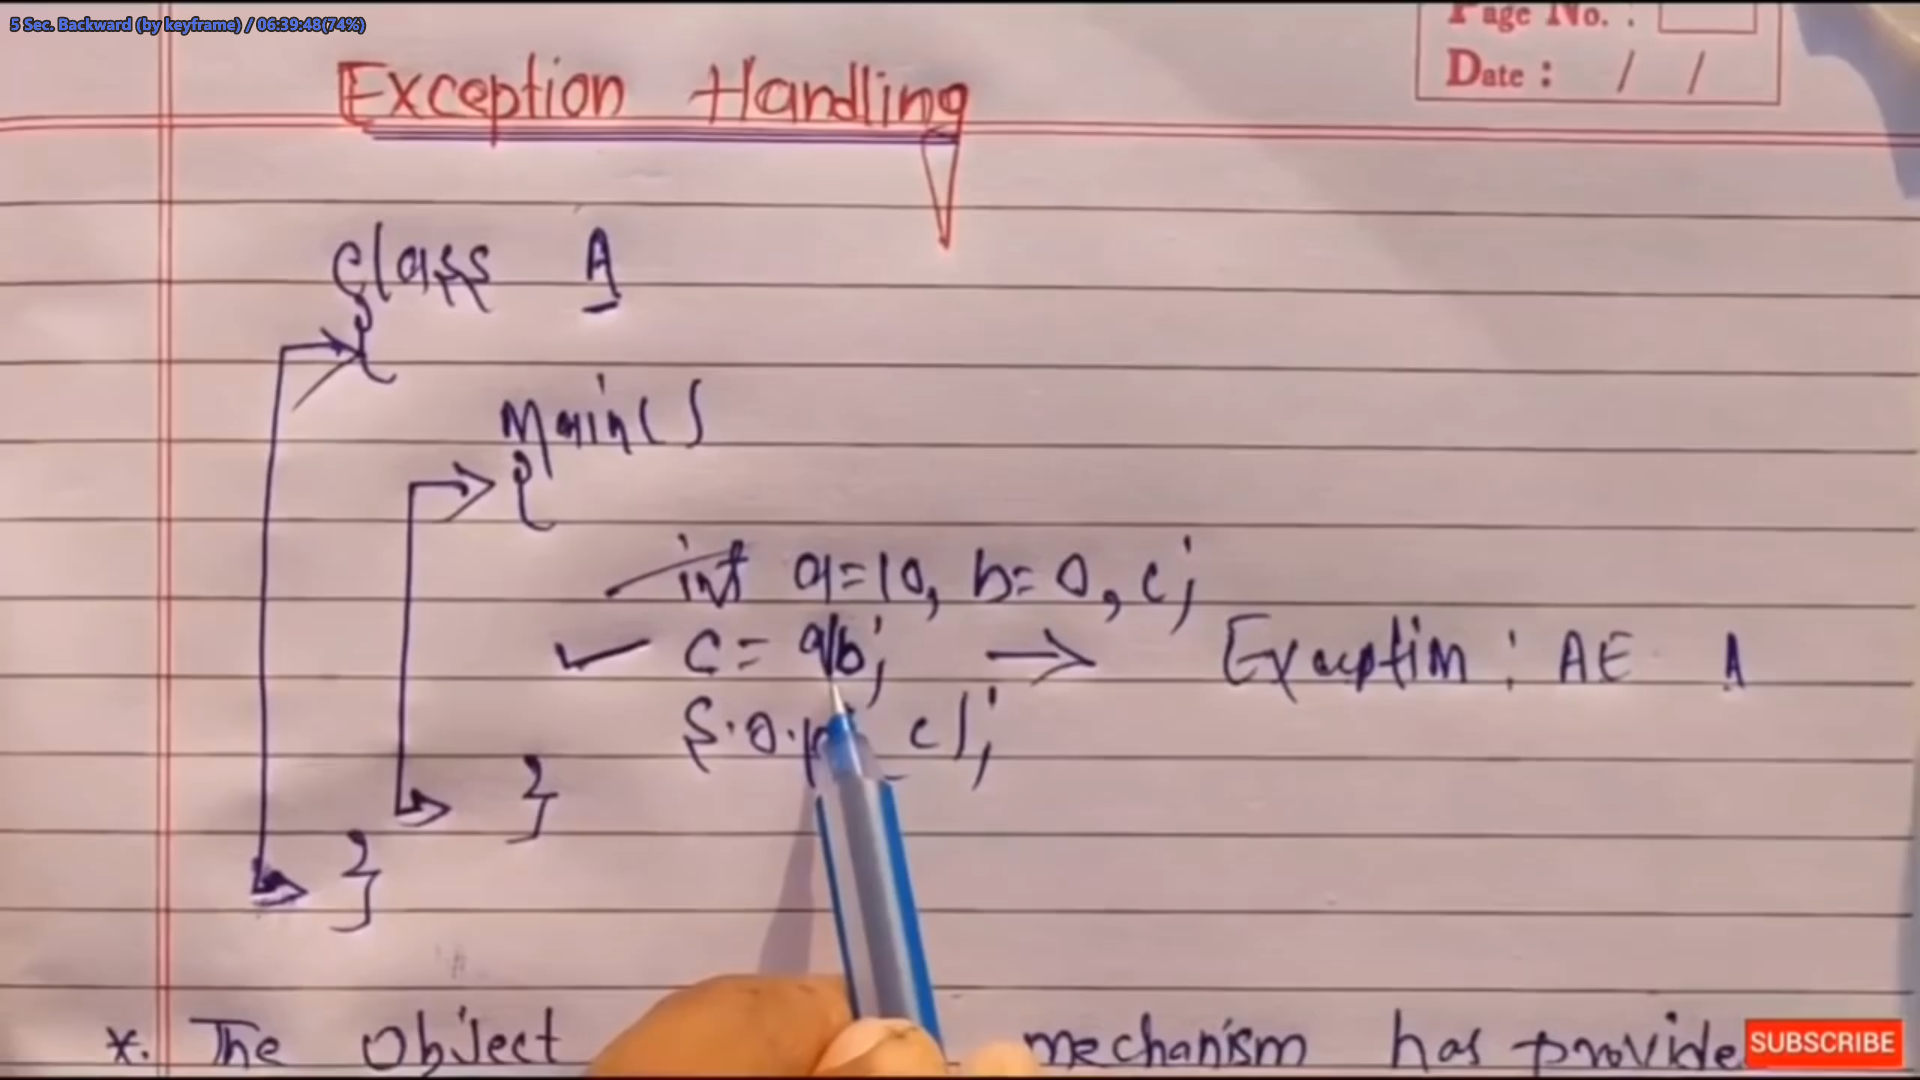 5 Sec. Backward (by keyframe) / 06:39:48(74%)
Page No. :
Date : / /
Exception Handling
Class A
{
Main()
{
int a=10, b=0, c;
c = a/b; → Exception : AE A
S.o.p( c);
}
}
*. The Object mechanism has provide
SUBSCRIBE